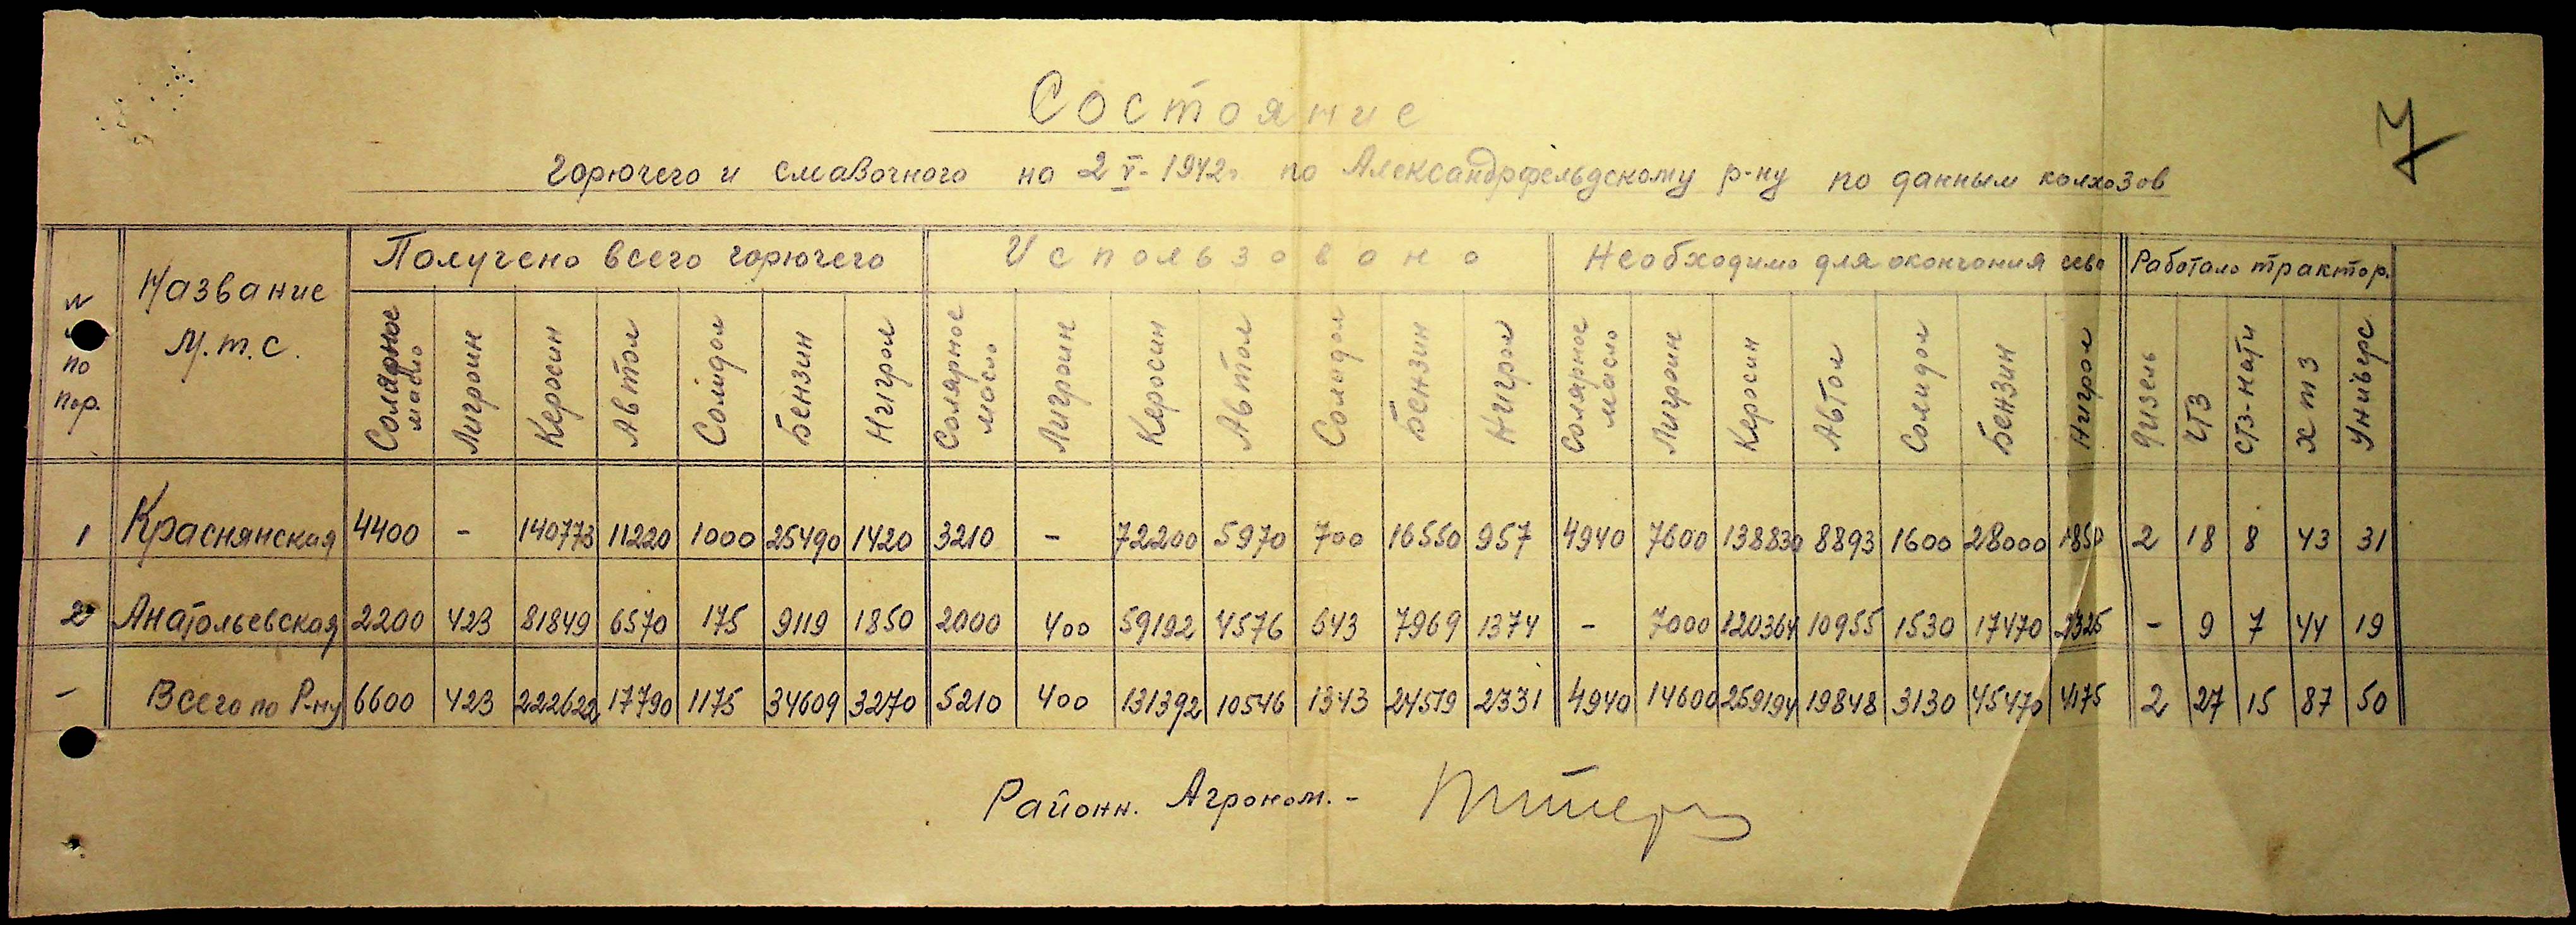 7
Состояние
горючего и смавочного на 2 V-1942г. по Александрфельдскому р-ну по данным колхозов
№ по пор. | Название М.т.с. | Получено всего горючего | Использовано | Необходимо для окончания сева | Работало трактор.
Солярное масло | Лигроин | Керосин | Автол | Солидол | Бензин | Нигрол | Солярное масло | Лигроин | Керосин | Автол | Солидол | Бензин | Нигрол | Солярное масло | Лигроин | Керосин | Автол | Солидол | Бензин | Нигрол | Дизель | ЧТЗ | СТЗ-Нати | ХТЗ | Универс
1 | Краснянская | 4400 | - | 140773 | 11220 | 1000 | 25490 | 1420 | 3210 | - | 72200 | 5970 | 700 | 16550 | 957 | 4940 | 7600 | 138830 | 8893 | 1600 | 28000 | 1850 | 2 | 18 | 8 | 43 | 31
2 | Анатольевская | 2200 | 423 | 81849 | 6570 | 175 | 9119 | 1850 | 2000 | 400 | 59192 | 4576 | 643 | 7969 | 1374 | - | 7000 | 120364 | 10955 | 1530 | 17470 | 2325 | - | 9 | 7 | 44 | 19
- | Всего по Р-ну | 6600 | 423 | 222622 | 17790 | 1175 | 34609 | 3270 | 5210 | 400 | 131392 | 10546 | 1343 | 24519 | 2331 | 4940 | 14600 | 259194 | 19848 | 3130 | 45470 | 4175 | 2 | 27 | 15 | 87 | 50
Районн. Агроном. -